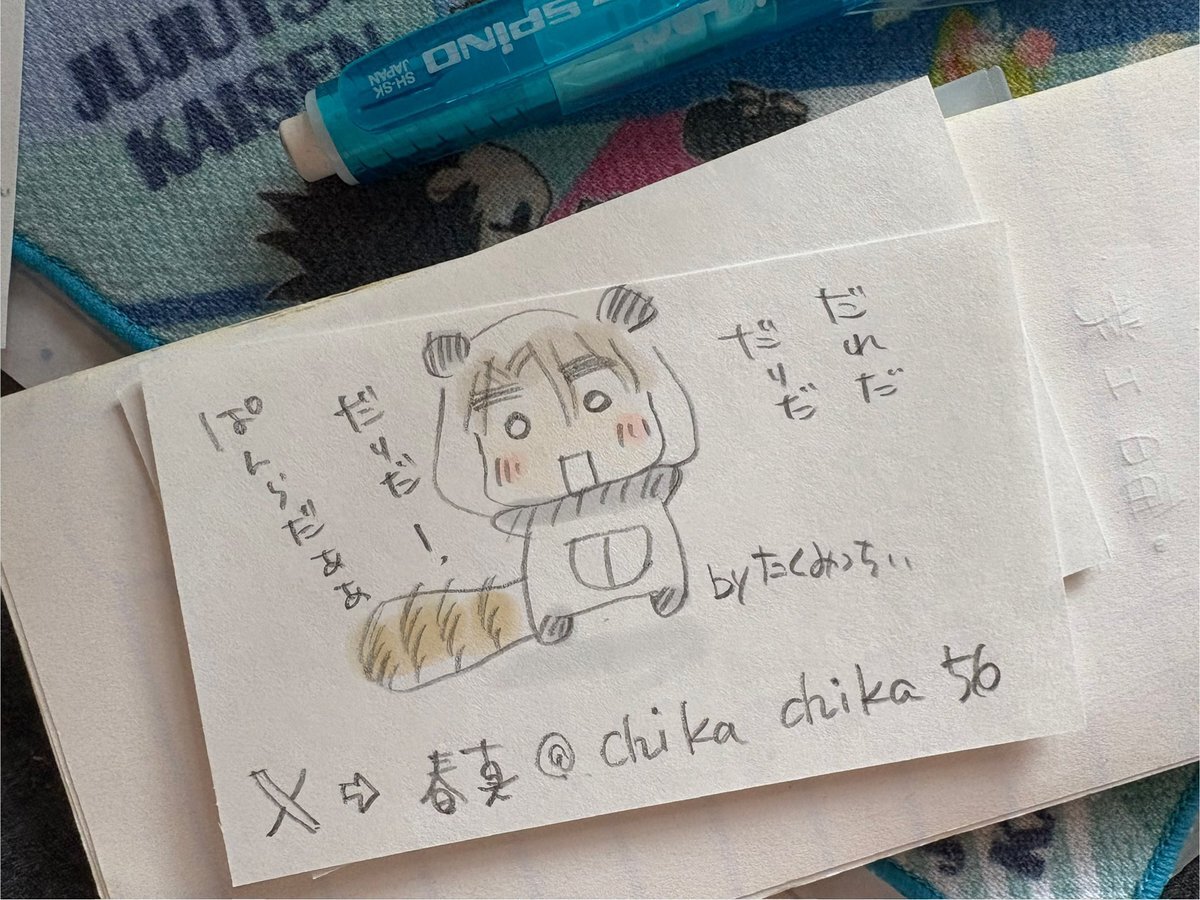 JUJUTSU
KAISEN
SPINO
SH-SK
JAPAN
だれだ
だりだ
だりだ
ー、
ぱんらだぁぁ
byたくみっちぃ
X⇨春真@chika chika 56